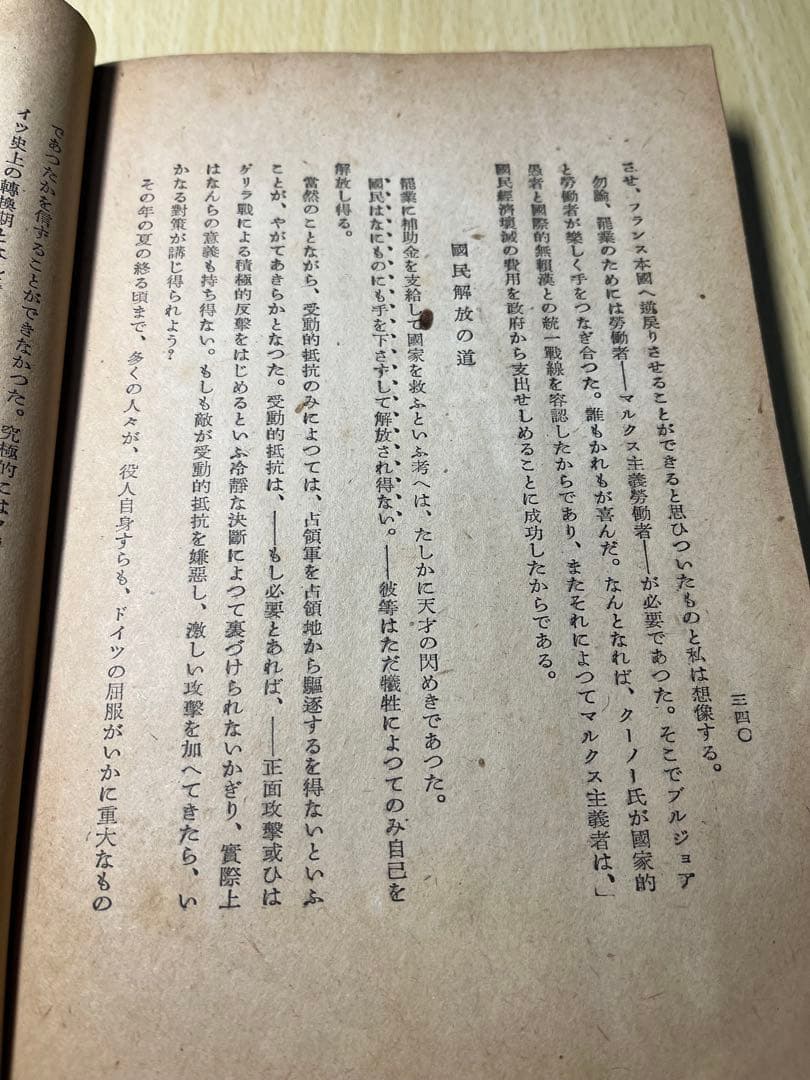 三四〇
させ、フランス本國へ逃戻りさせることができると思ひついたものと私は想像する。
勿論、罷業のためには勞働者――マルクス主義勞働者――が必要であつた。そこでブルジョア
と勞働者が樂しく手をつなぎ合つた。誰もかれもが喜んだ。なんとなれば、クーノー氏が國家的
愚者と國際的無頼漢との統一戰線を容認したからであり、またそれによつてマルクス主義者は、」
國民經濟壞滅の費用を政府から支出せしめることに成功したからである。
國民解放の道
罷業に補助金を支給して國家を救ふといふ考へは、たしかに天才の閃めきであつた。
國民はなにものにも手を下さずして解放され得ない。――彼等はただ犧牲によつてのみ自己を
解放し得る。
當然のことながら、受動的抵抗のみによつては、占領軍を占領地から驅逐するを得ないといふ
ことが、やがてあきらかとなつた。受動的抵抗は、――もし必要とあれば、――正面攻擊或ひは
ゲリラ戰による積極的反擊をはじめるといふ冷靜な決斷によつて裏づけられないかぎり、實際上
はなんらの意義も持ち得ない。もしも敵が受動的抵抗を嫌惡し、激しい攻擊を加へてきたら、い
かなる對策が講じ得られよう?
その年の夏の終る頃まで、多くの人々が、役人自身すらも、ドイツの屈服がいかに重大なもの
であつたかを信ずることができなかつた。究極的には
イツ史上の轉換期と